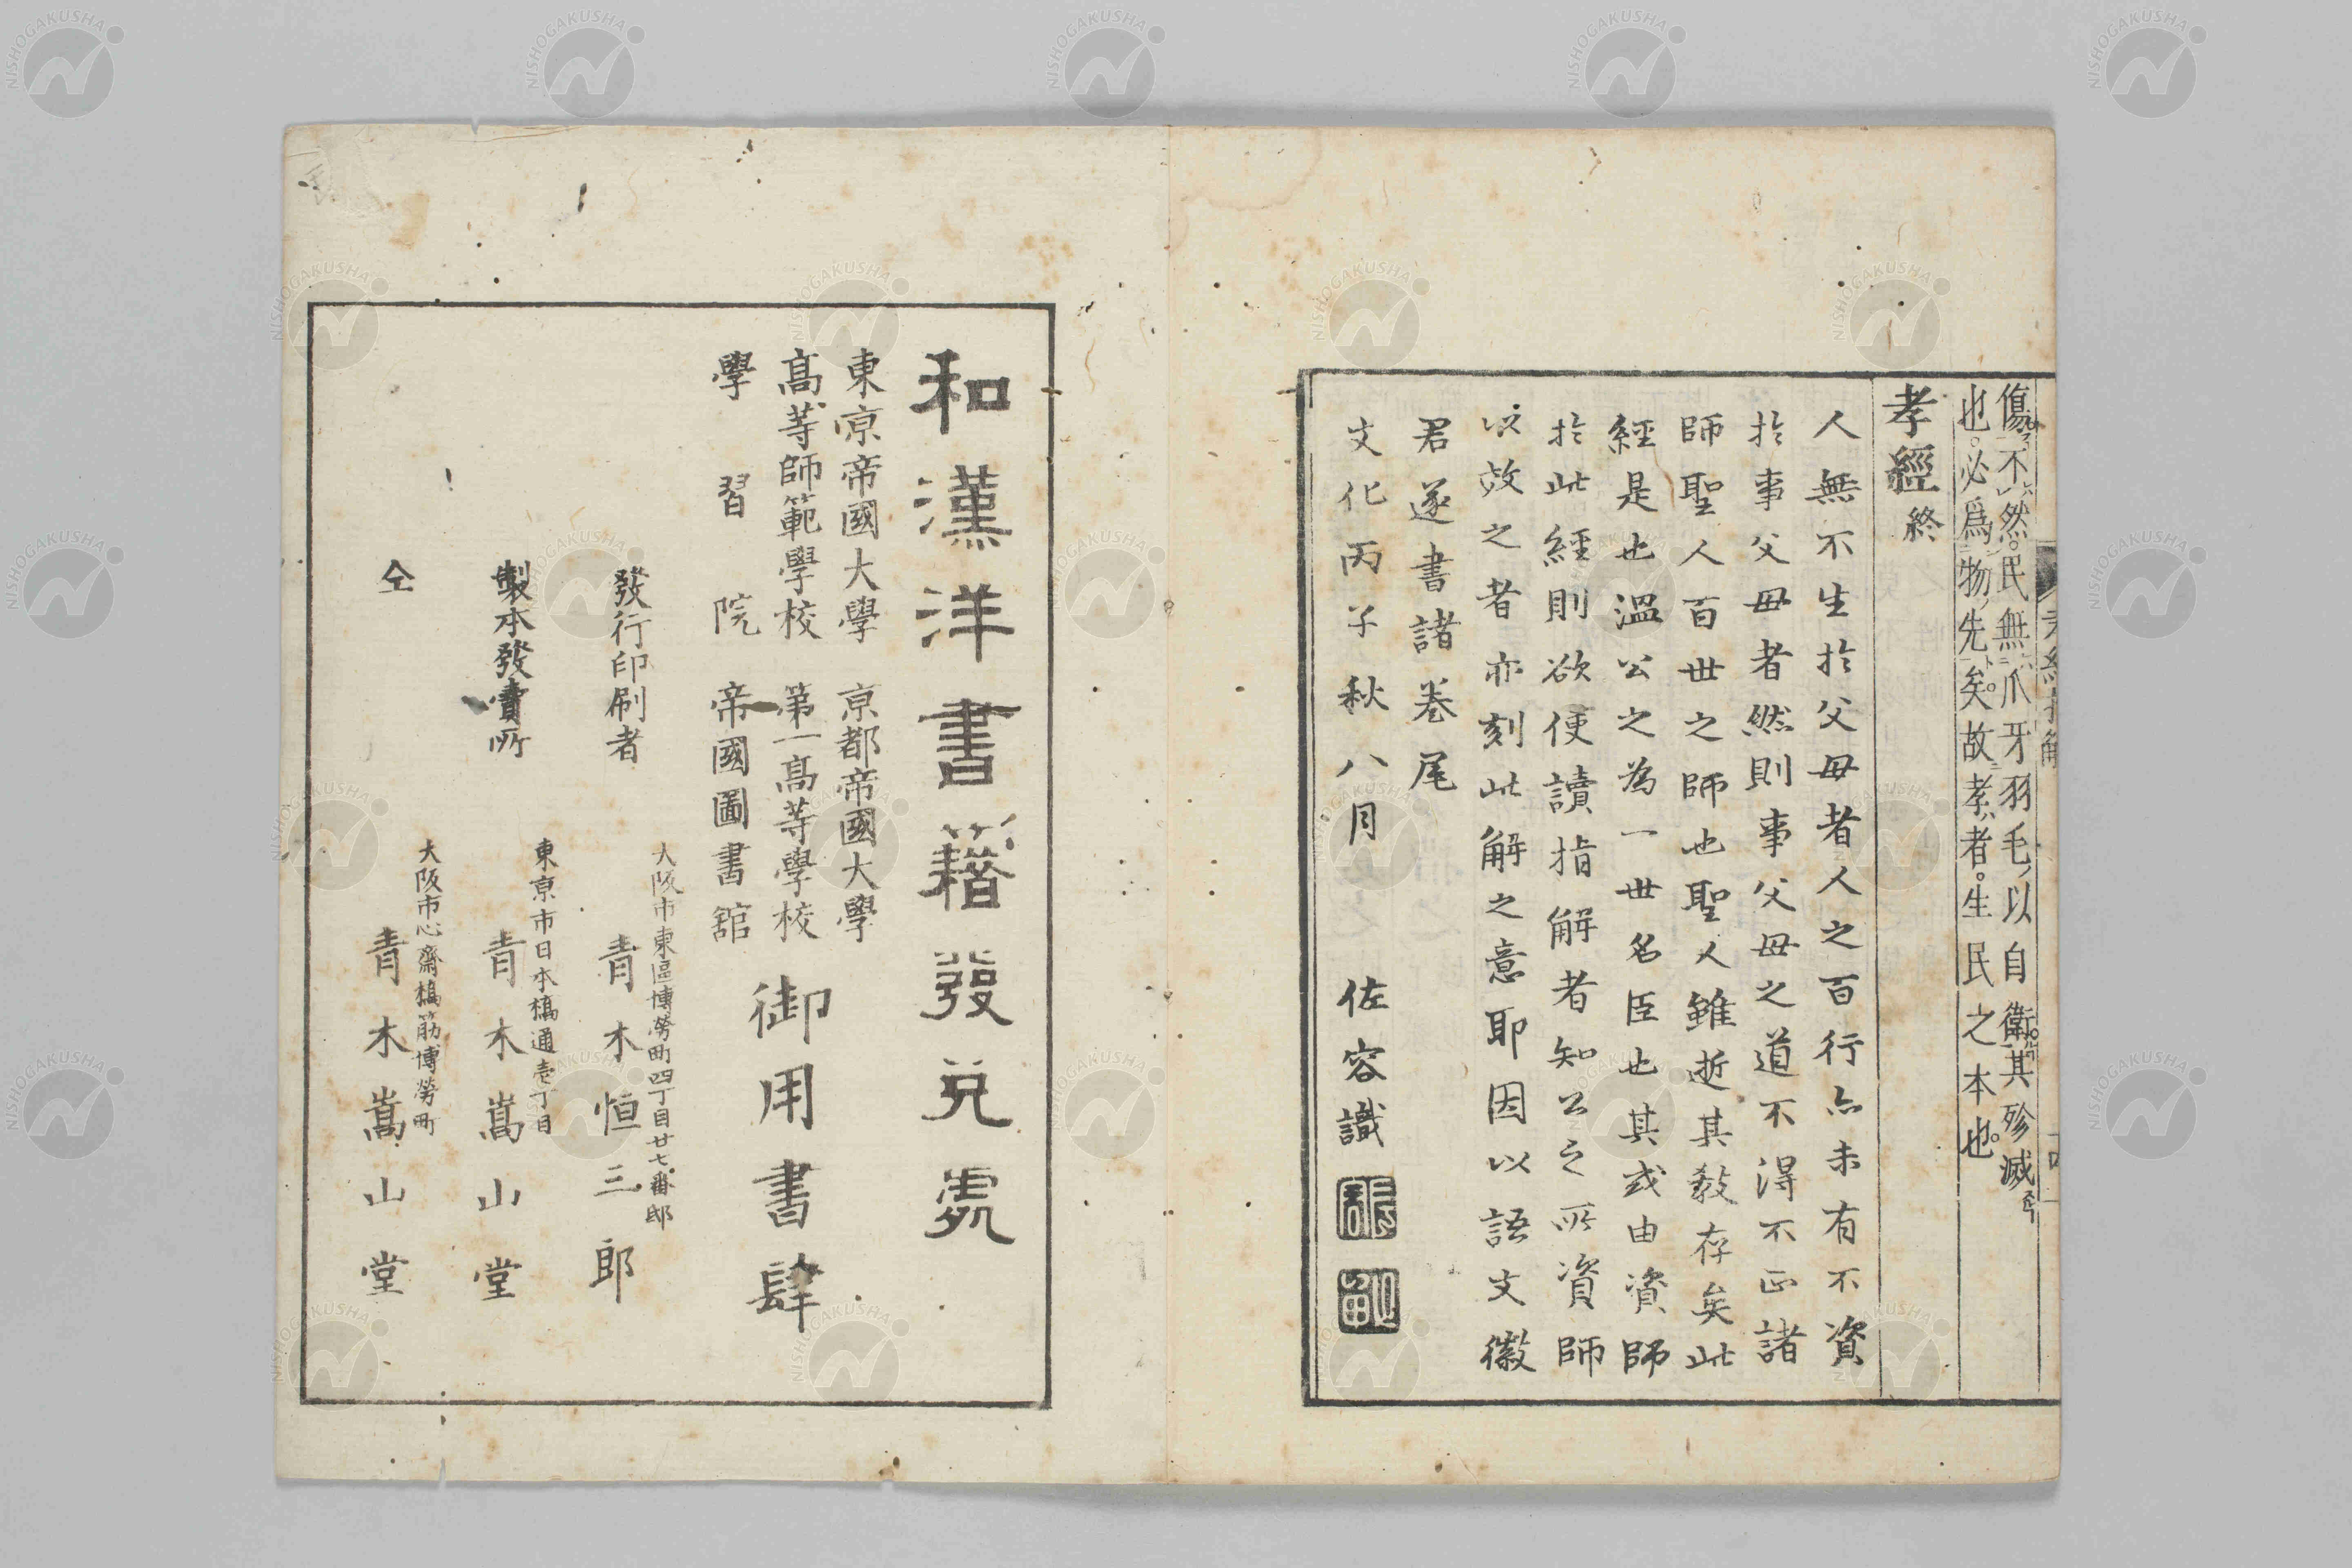 傷不然民無爪牙羽毛以自衛其殄滅
也必爲物先矣故孝者生民之本也
孝經終
人無不生於父母者人之百行亦未有不資
於事父母者然則事父母之道不得不正諸
師聖人百世之師也聖人雖逝其教存矣此
經是也溫公之為一世名臣也其或由資師
於此經則欲便讀指解者知公之所資師
以效之者亦刻此解之意耶因以語文徽
君遂書諸卷尾
文化丙子秋八月 佐容識
和漢洋書籍發兌處
東京帝國大學 京都帝國大學
高等師範學校 第一高等學校
學習院 帝國圖書館
御用書肆
發行印刷者
大阪市東區博勞町四丁目廿七番邸
青木恒三郎
製本發賣所
東京市日本橋通壱丁目
青木嵩山堂
仝
大阪市心齋橋筋博勞町
青木嵩山堂
NISHOGAKUSHA